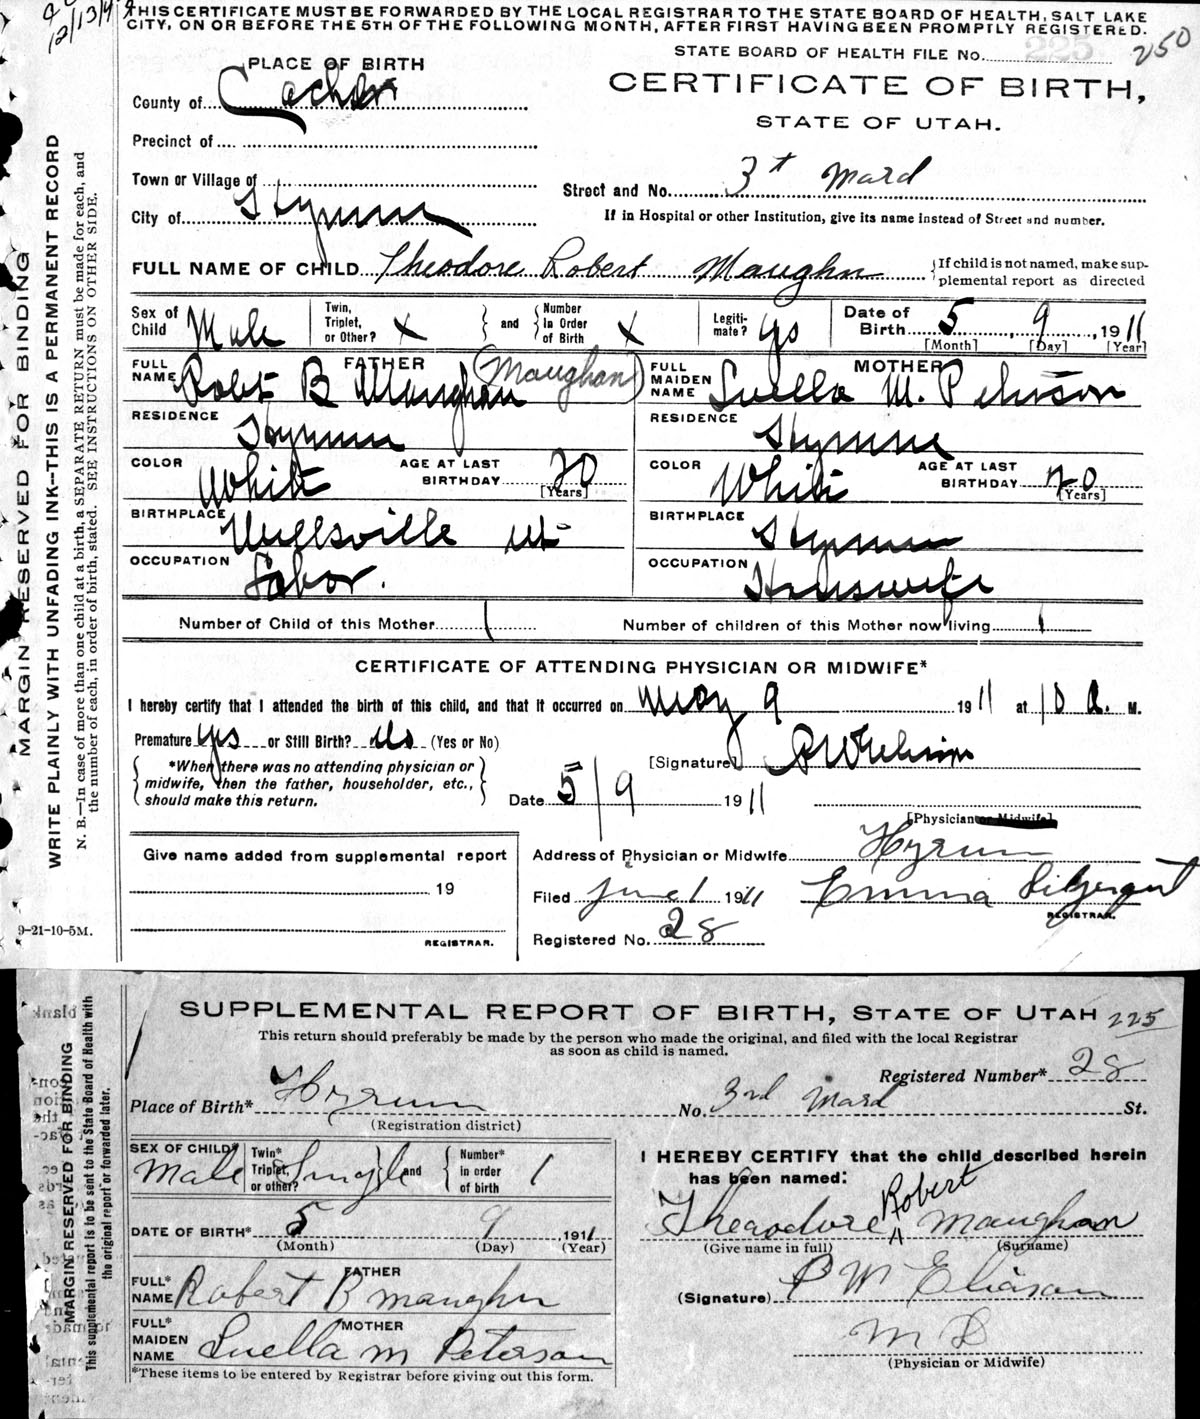 THIS CERTIFICATE MUST BE FORWARDED BY THE LOCAL REGISTRAR TO THE STATE BOARD OF HEALTH, SALT LAKE
CITY, ON OR BEFORE THE 5TH OF THE FOLLOWING MONTH, AFTER FIRST HAVING BEEN PROMPTLY REGISTERED.
STATE BOARD OF HEALTH FILE No. 225 250
PLACE OF BIRTH
CERTIFICATE OF BIRTH,
STATE OF UTAH.
County of Cache
Precinct of
Town or Village of
Street and No. 3rd Ward
City of Hyrum
If in Hospital or other Institution, give its name instead of Street and number.
FULL NAME OF CHILD Theodore Robert Maughn
{If child is not named, make sup-
plemental report as directed
Sex of Child Male
Twin, Triplet, or Other? X
and
Number In Order of Birth X
Legiti-mate? ys
Date of Birth 5, 9, 1911
[Month] [Day] [Year]
FATHER
FULL NAME Robt B Maughan (Maughan)
MOTHER
FULL MAIDEN NAME Luella M. Peterson
RESIDENCE Hyrum
RESIDENCE Hyrum
COLOR White
AGE AT LAST BIRTHDAY 20 [Years]
COLOR White
AGE AT LAST BIRTHDAY 20 [Years]
BIRTHPLACE Wellsville ut
BIRTHPLACE Hyrum
OCCUPATION Labor.
OCCUPATION Housewife
Number of Child of this Mother 1
Number of children of this Mother now living 1
CERTIFICATE OF ATTENDING PHYSICIAN OR MIDWIFE*
I hereby certify that I attended the birth of this child, and that it occurred on May 9 1911 at 10 a. M.
Premature ys or Still Birth? No (Yes or No)
{*When there was no attending physician or
midwife, then the father, householder, etc.,
should make this return.}
[Signature]
Date 5/9 1911
[Physician or Midwife]
Give name added from supplemental report
19
REGISTRAR.
Address of Physician or Midwife Hyrum
Filed june 1 1911 Emma
REGISTRAR.
Registered No. 28
9-21-10-5M.
MARGIN RESERVED FOR BINDING
WRITE PLAINLY WITH UNFADING INK--THIS IS A PERMANENT RECORD
N. B.--In case of more than one child at a birth, a SEPARATE RETURN must be made for each, and
the number of each, in order of birth, stated. SEE INSTRUCTIONS ON OTHER SIDE.
SUPPLEMENTAL REPORT OF BIRTH, STATE OF UTAH 225
This return should preferably be made by the person who made the original, and filed with the local Registrar
as soon as child is named.
Registered Number* 28
Place of Birth* Hyrum No. 3rd Ward St.
(Registration district)
SEX OF CHILD* Male
Twin* Triplet, or other? Single
and
Number* in order of birth 1
I HEREBY CERTIFY that the child described herein
has been named:
DATE OF BIRTH* 5 9, 1911
(Month) (Day) (Year)
Theodore Robert Maughan
(Give name in full) (Surname)
FATHER
FULL* NAME Robert B Maughn
(Signature) P W Eliason
M D
(Physician or Midwife)
MOTHER
FULL* MAIDEN NAME Luella M Peterson
*These items to be entered by Registrar before giving out this form.
MARGIN RESERVED FOR BINDING
This supplemental report is to be sent to the State Board of Health with
the original report or forwarded later.